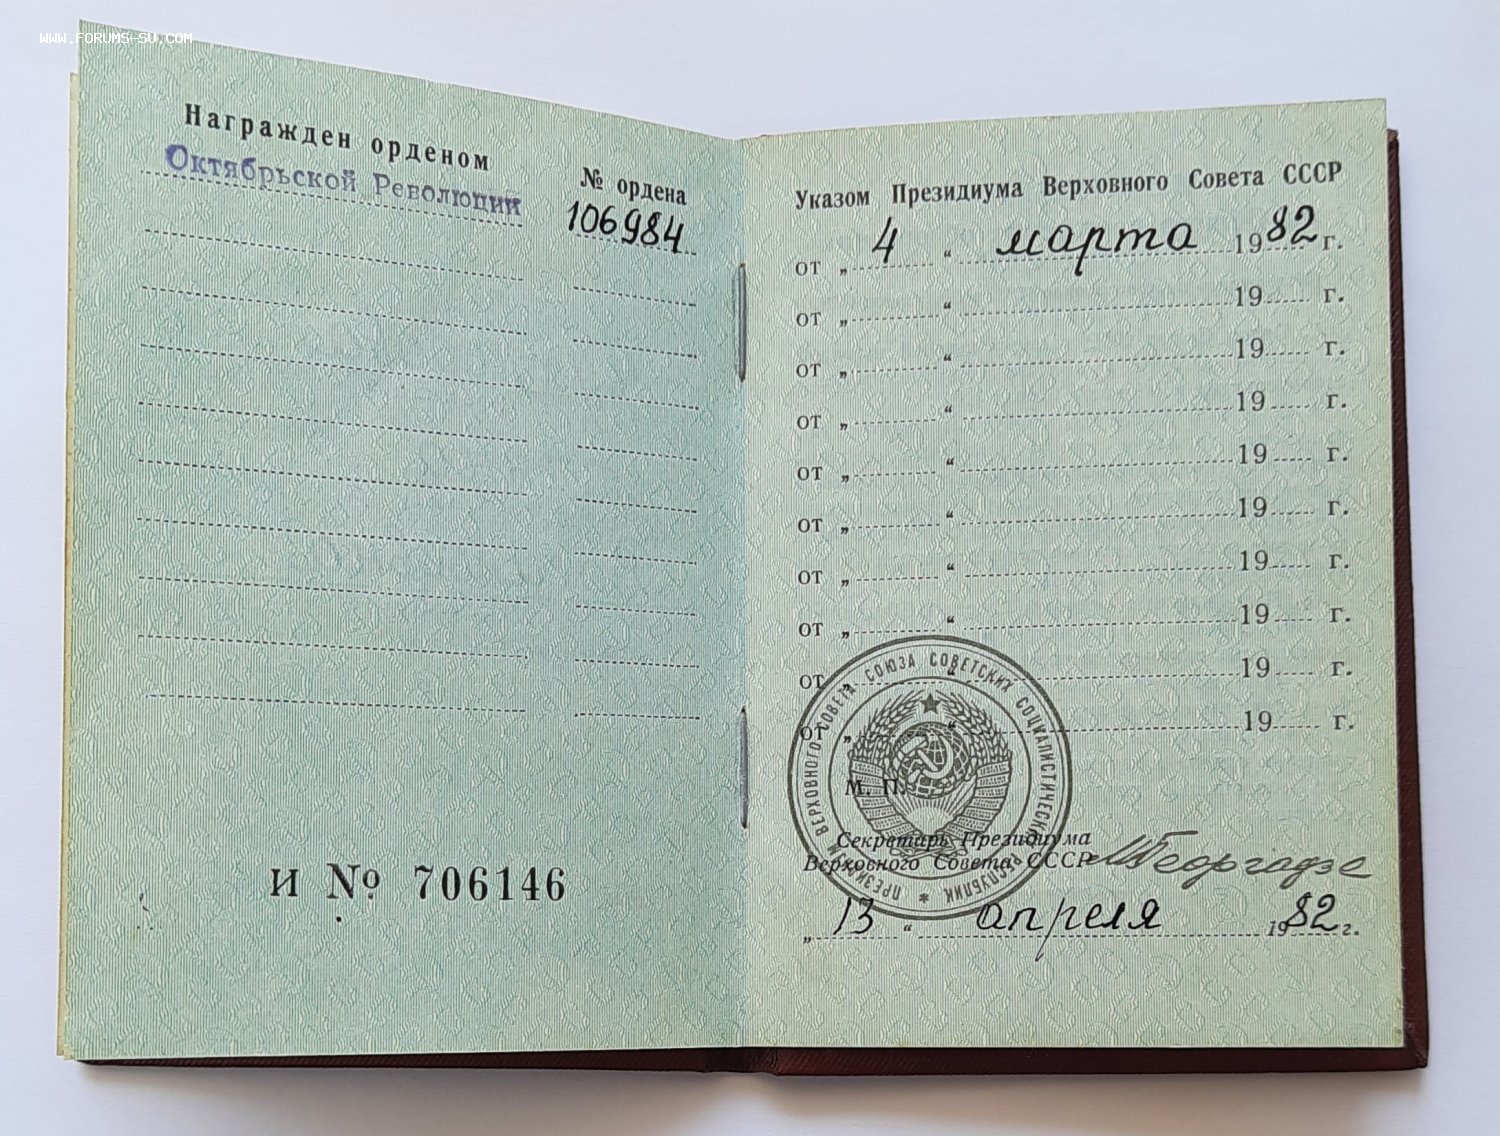 WWW.FORUMS-SU.COM
Награжден орденом
№ ордена
Октябрьской Революции
106984
И № 706146
Указом Президиума Верховного Совета СССР
от „ 4 “ марта 1982 г.
от „ “ 19 г.
от „ “ 19 г.
от „ “ 19 г.
от „ “ 19 г.
от „ “ 19 г.
от „ “ 19 г.
от „ “ 19 г.
от „ “ 19 г.
от „ “ 19 г.
ПРЕЗИДИУМ ВЕРХОВНОГО СОВЕТА СОЮЗА СОВЕТСКИХ СОЦИАЛИСТИЧЕСКИХ РЕСПУБЛИК *
М. П.
Секретарь Президиума
Верховного Совета СССР МГеоргадзе
„ 13 “ апреля 1982 г.